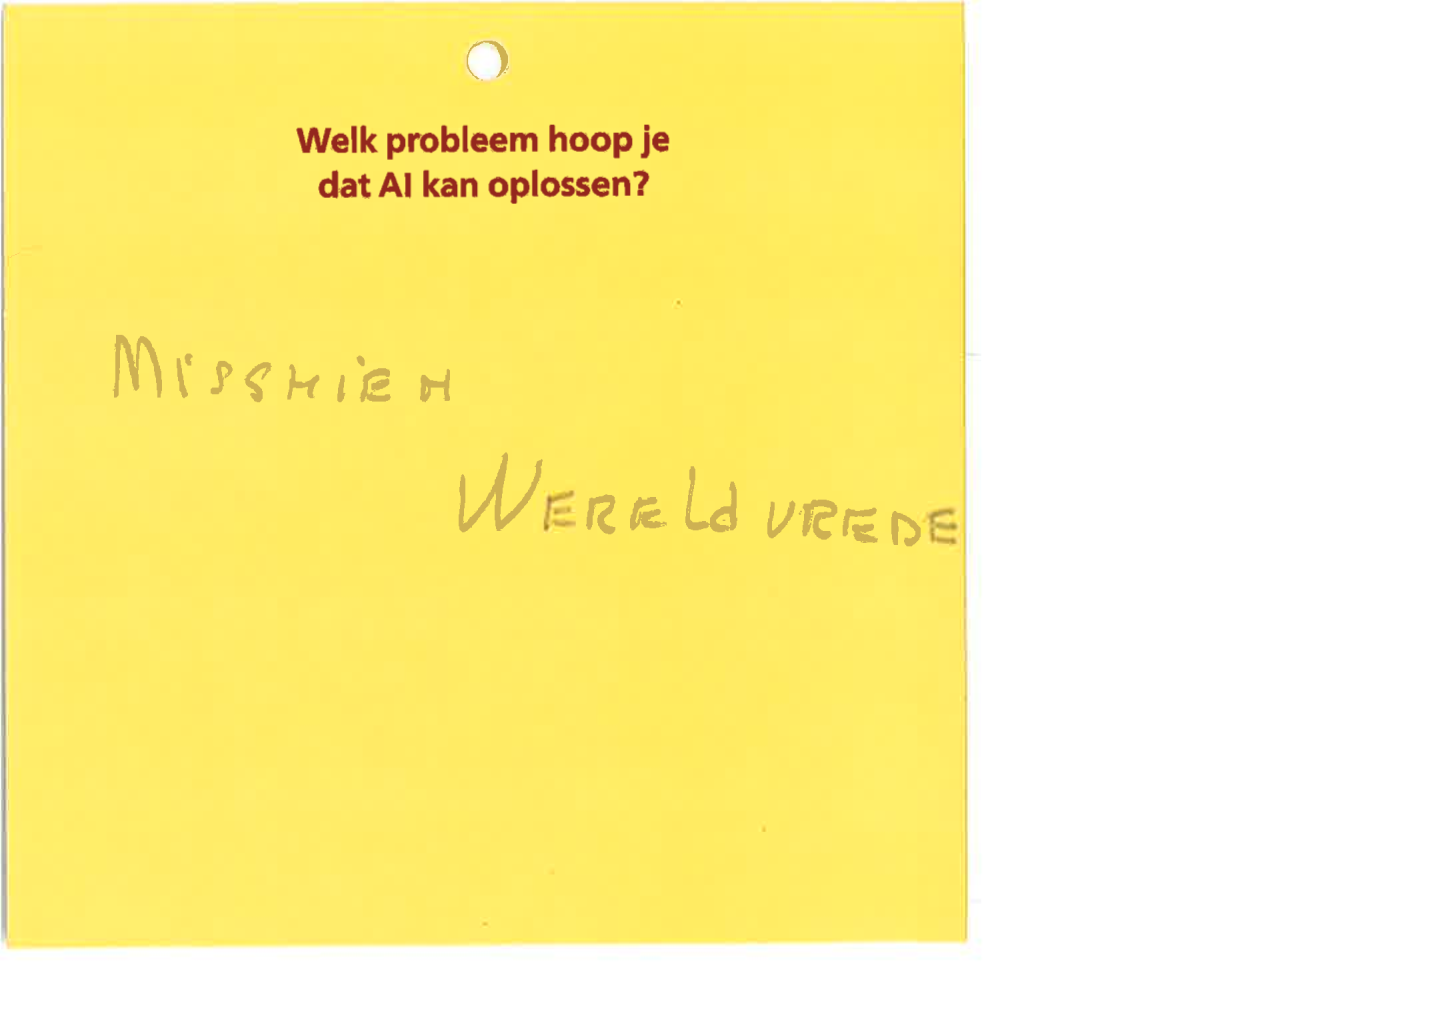 Welk probleem hoop je
dat AI kan oplossen?
MISSHIEN
WERELDVREDE